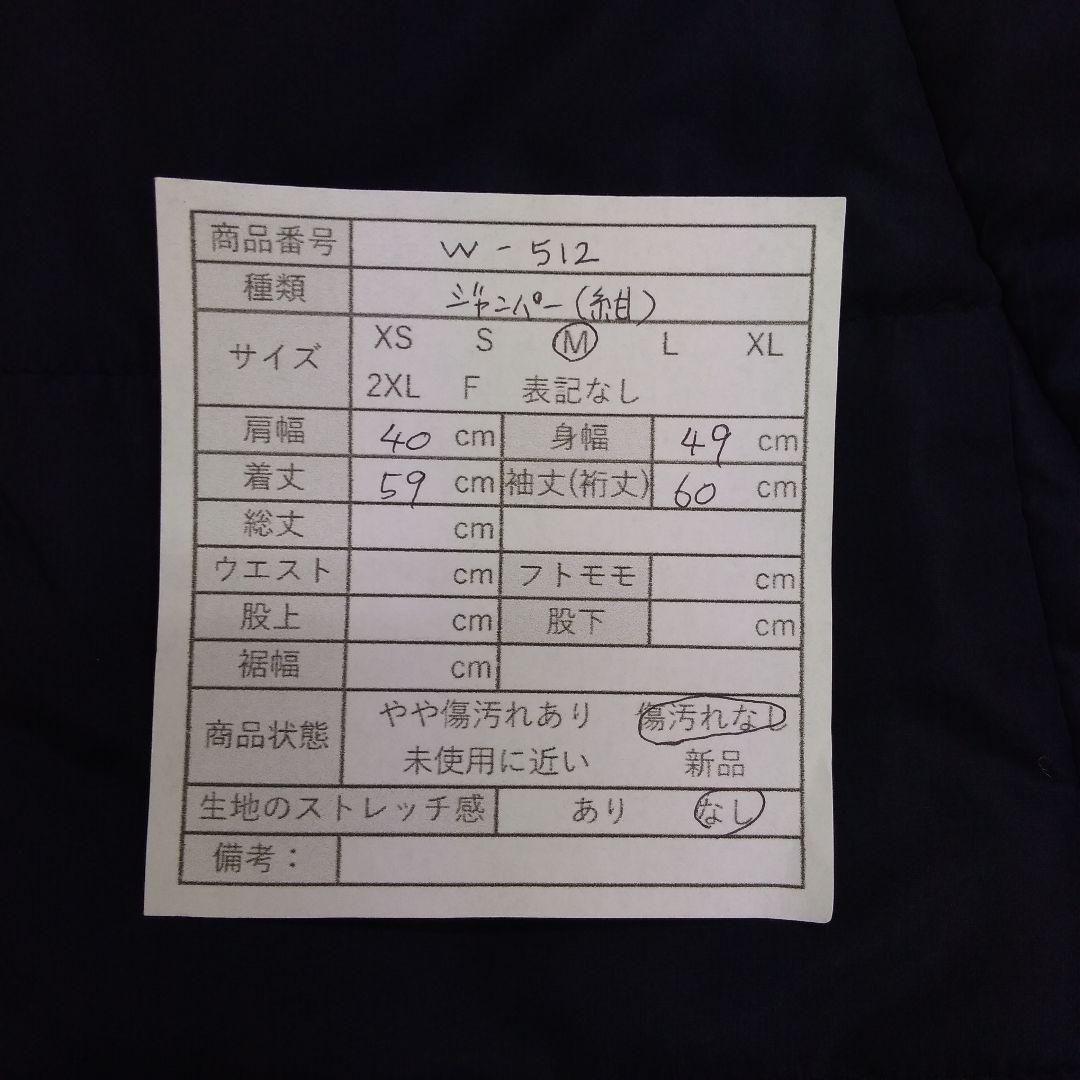 商品番号 W-512
種類 ジャンパー(紺)
サイズ XS S M L XL
2XL F 表記なし
肩幅 40 cm 身幅 49 cm
着丈 59 cm 袖丈(裄丈) 60 cm
総丈 cm
ウエスト cm フトモモ cm
股上 cm 股下 cm
裾幅 cm
商品状態 やや傷汚れあり 傷汚れなし
未使用に近い 新品
生地のストレッチ感 あり なし
備考：